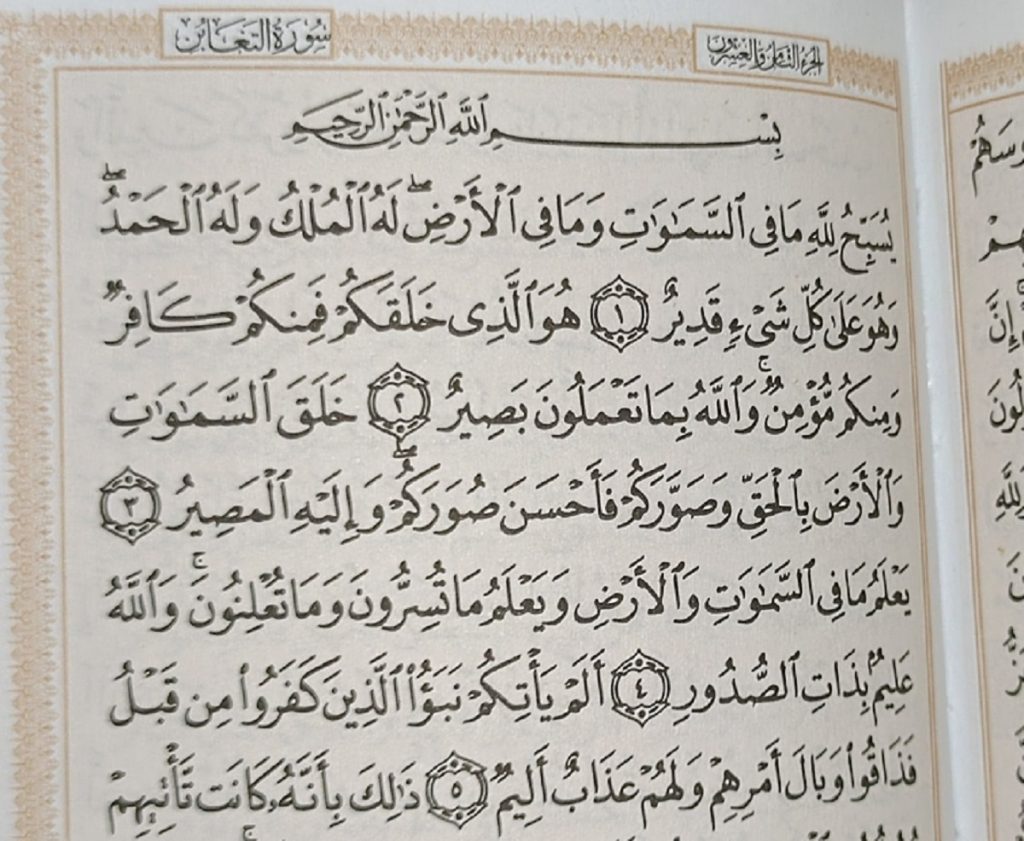 سُورَةُ التَّغَابُنِ
الجُزْءُ الثَّامِنُ وَالعِشْرُونَ
بِسْمِ ٱللَّهِ ٱلرَّحْمَٰنِ ٱلرَّحِيمِ
يُسَبِّحُ لِلَّهِ مَا فِى ٱلسَّمَٰوَٰتِ وَمَا فِى ٱلْأَرْضِۖ لَهُ ٱلْمُلْكُ وَلَهُ ٱلْحَمْدُۖ
وَهُوَ عَلَىٰ كُلِّ شَىْءٍ قَدِيرٌ ١ هُوَ ٱلَّذِى خَلَقَكُمْ فَمِنكُمْ كَافِرٌ
وَمِنكُم مُّؤْمِنٌۚ وَٱللَّهُ بِمَا تَعْمَلُونَ بَصِيرٌ ٢ خَلَقَ ٱلسَّمَٰوَٰتِ
وَٱلْأَرْضَ بِٱلْحَقِّ وَصَوَّرَكُمْ فَأَحْسَنَ صُوَرَكُمْۖ وَإِلَيْهِ ٱلْمَصِيرُ ٣
يَعْلَمُ مَا فِى ٱلسَّمَٰوَٰتِ وَٱلْأَرْضِ وَيَعْلَمُ مَا تُسِرُّونَ وَمَا تُعْلِنُونَۚ وَٱللَّهُ
عَلِيمٌۢ بِذَاتِ ٱلصُّدُورِ ٤ أَلَمْ يَأْتِكُمْ نَبَؤُا۟ ٱلَّذِينَ كَفَرُوا۟ مِن قَبْلُ
فَذَاقُوا۟ وَبَالَ أَمْرِهِمْ وَلَهُمْ عَذَابٌ أَلِيمٌ ٥ ذَٰلِكَ بِأَنَّهُۥ كَانَت تَّأْتِيهِمْ